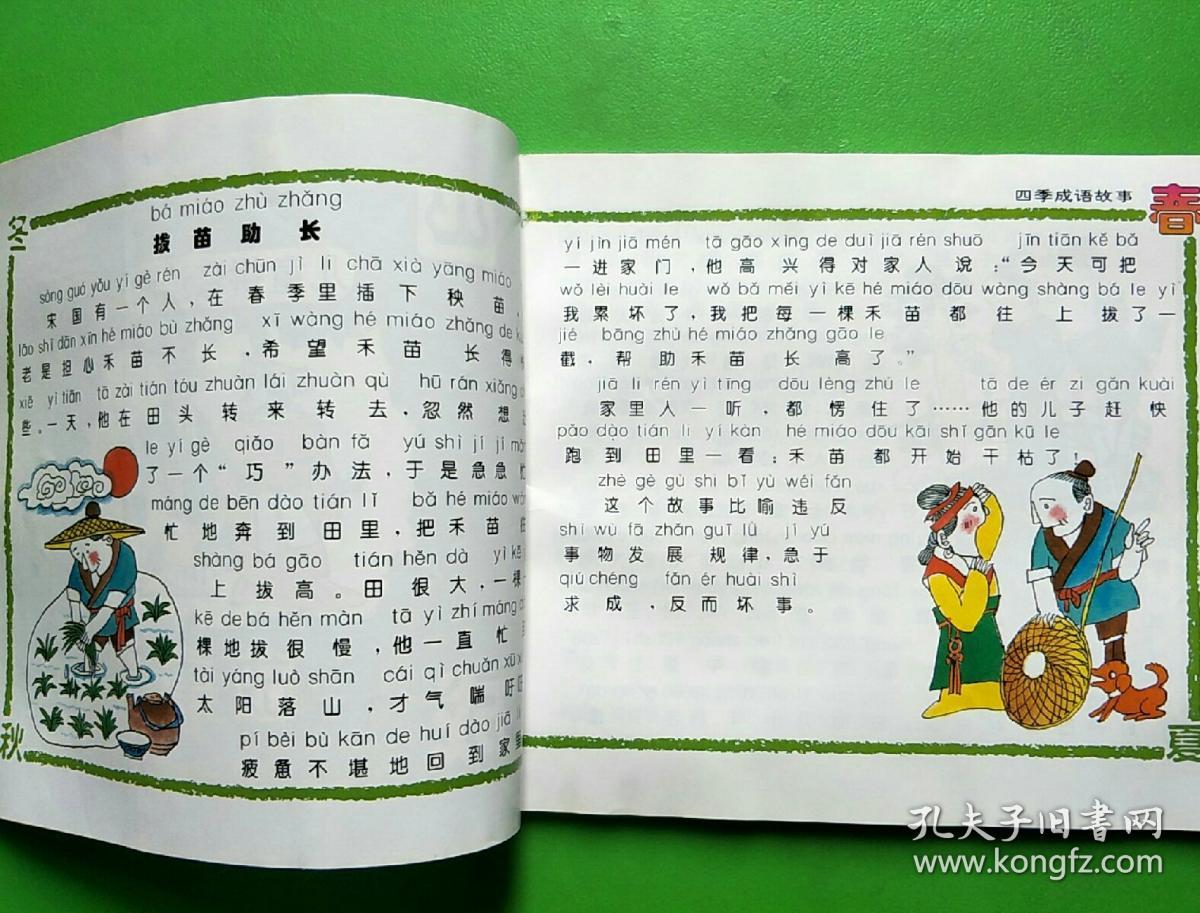 冬
bá miáo zhù zhǎng
拔苗助长
sòng guó yǒu yí gè rén zài chūn jì li chā xià yāng miáo
宋国有一个人,在春季里插下秧苗,
lǎo shì dān xīn hé miáo bù zhǎng xī wàng hé miáo zhǎng de
老是担心禾苗不长,希望禾苗长得
xiē yì tiān tā zài tián tóu zhuàn lái zhuàn qù hū rán xiǎng
些。一天,他在田头转来转去,忽然想
le yí gè qiǎo bàn fǎ yú shì jí jí
了一个“巧”办法,于是急急忙
máng de bēn dào tián lǐ bǎ hé miáo
忙地奔到田里,把禾苗往
shàng bá gāo tián hěn dà yì kē
上拔高。田很大,一棵
kē de bá hěn màn tā yì zhí máng
棵地拔很慢,他一直忙
tài yáng luò shān cái qì chuǎn xū
太阳落山,才气喘吁吁
pí bèi bù kān de huí dào jiā
疲惫不堪地回到家
秋
四季成语故事
春
yí jìn jiā mén tā gāo xìng de duì jiā rén shuō jīn tiān kě bǎ
一进家门,他高兴得对家人说:“今天可把
wǒ lèi huài le wǒ bǎ měi yì kē hé miáo dōu wàng shàng bá le yì
我累坏了,我把每一棵禾苗都往上拔了一
jié bāng zhù hé miáo zhǎng gāo le
截,帮助禾苗长高了。”
jiā li rén yì tīng dōu lèng zhù le tā de ér zi gǎn kuài
家里人一听,都愣住了……他的儿子赶快
pǎo dào tián li yí kàn hé miáo dōu kāi shǐ gān kū le
跑到田里一看:禾苗都开始干枯了!
zhè gè gù shi bǐ yù wéi fǎn
这个故事比喻违反
shì wù fā zhǎn guī lǜ jí yú
事物发展规律,急于
qiú chéng fǎn ér huài shì
求成,反而坏事。
夏
孔夫子旧书网
www.kongfz.com